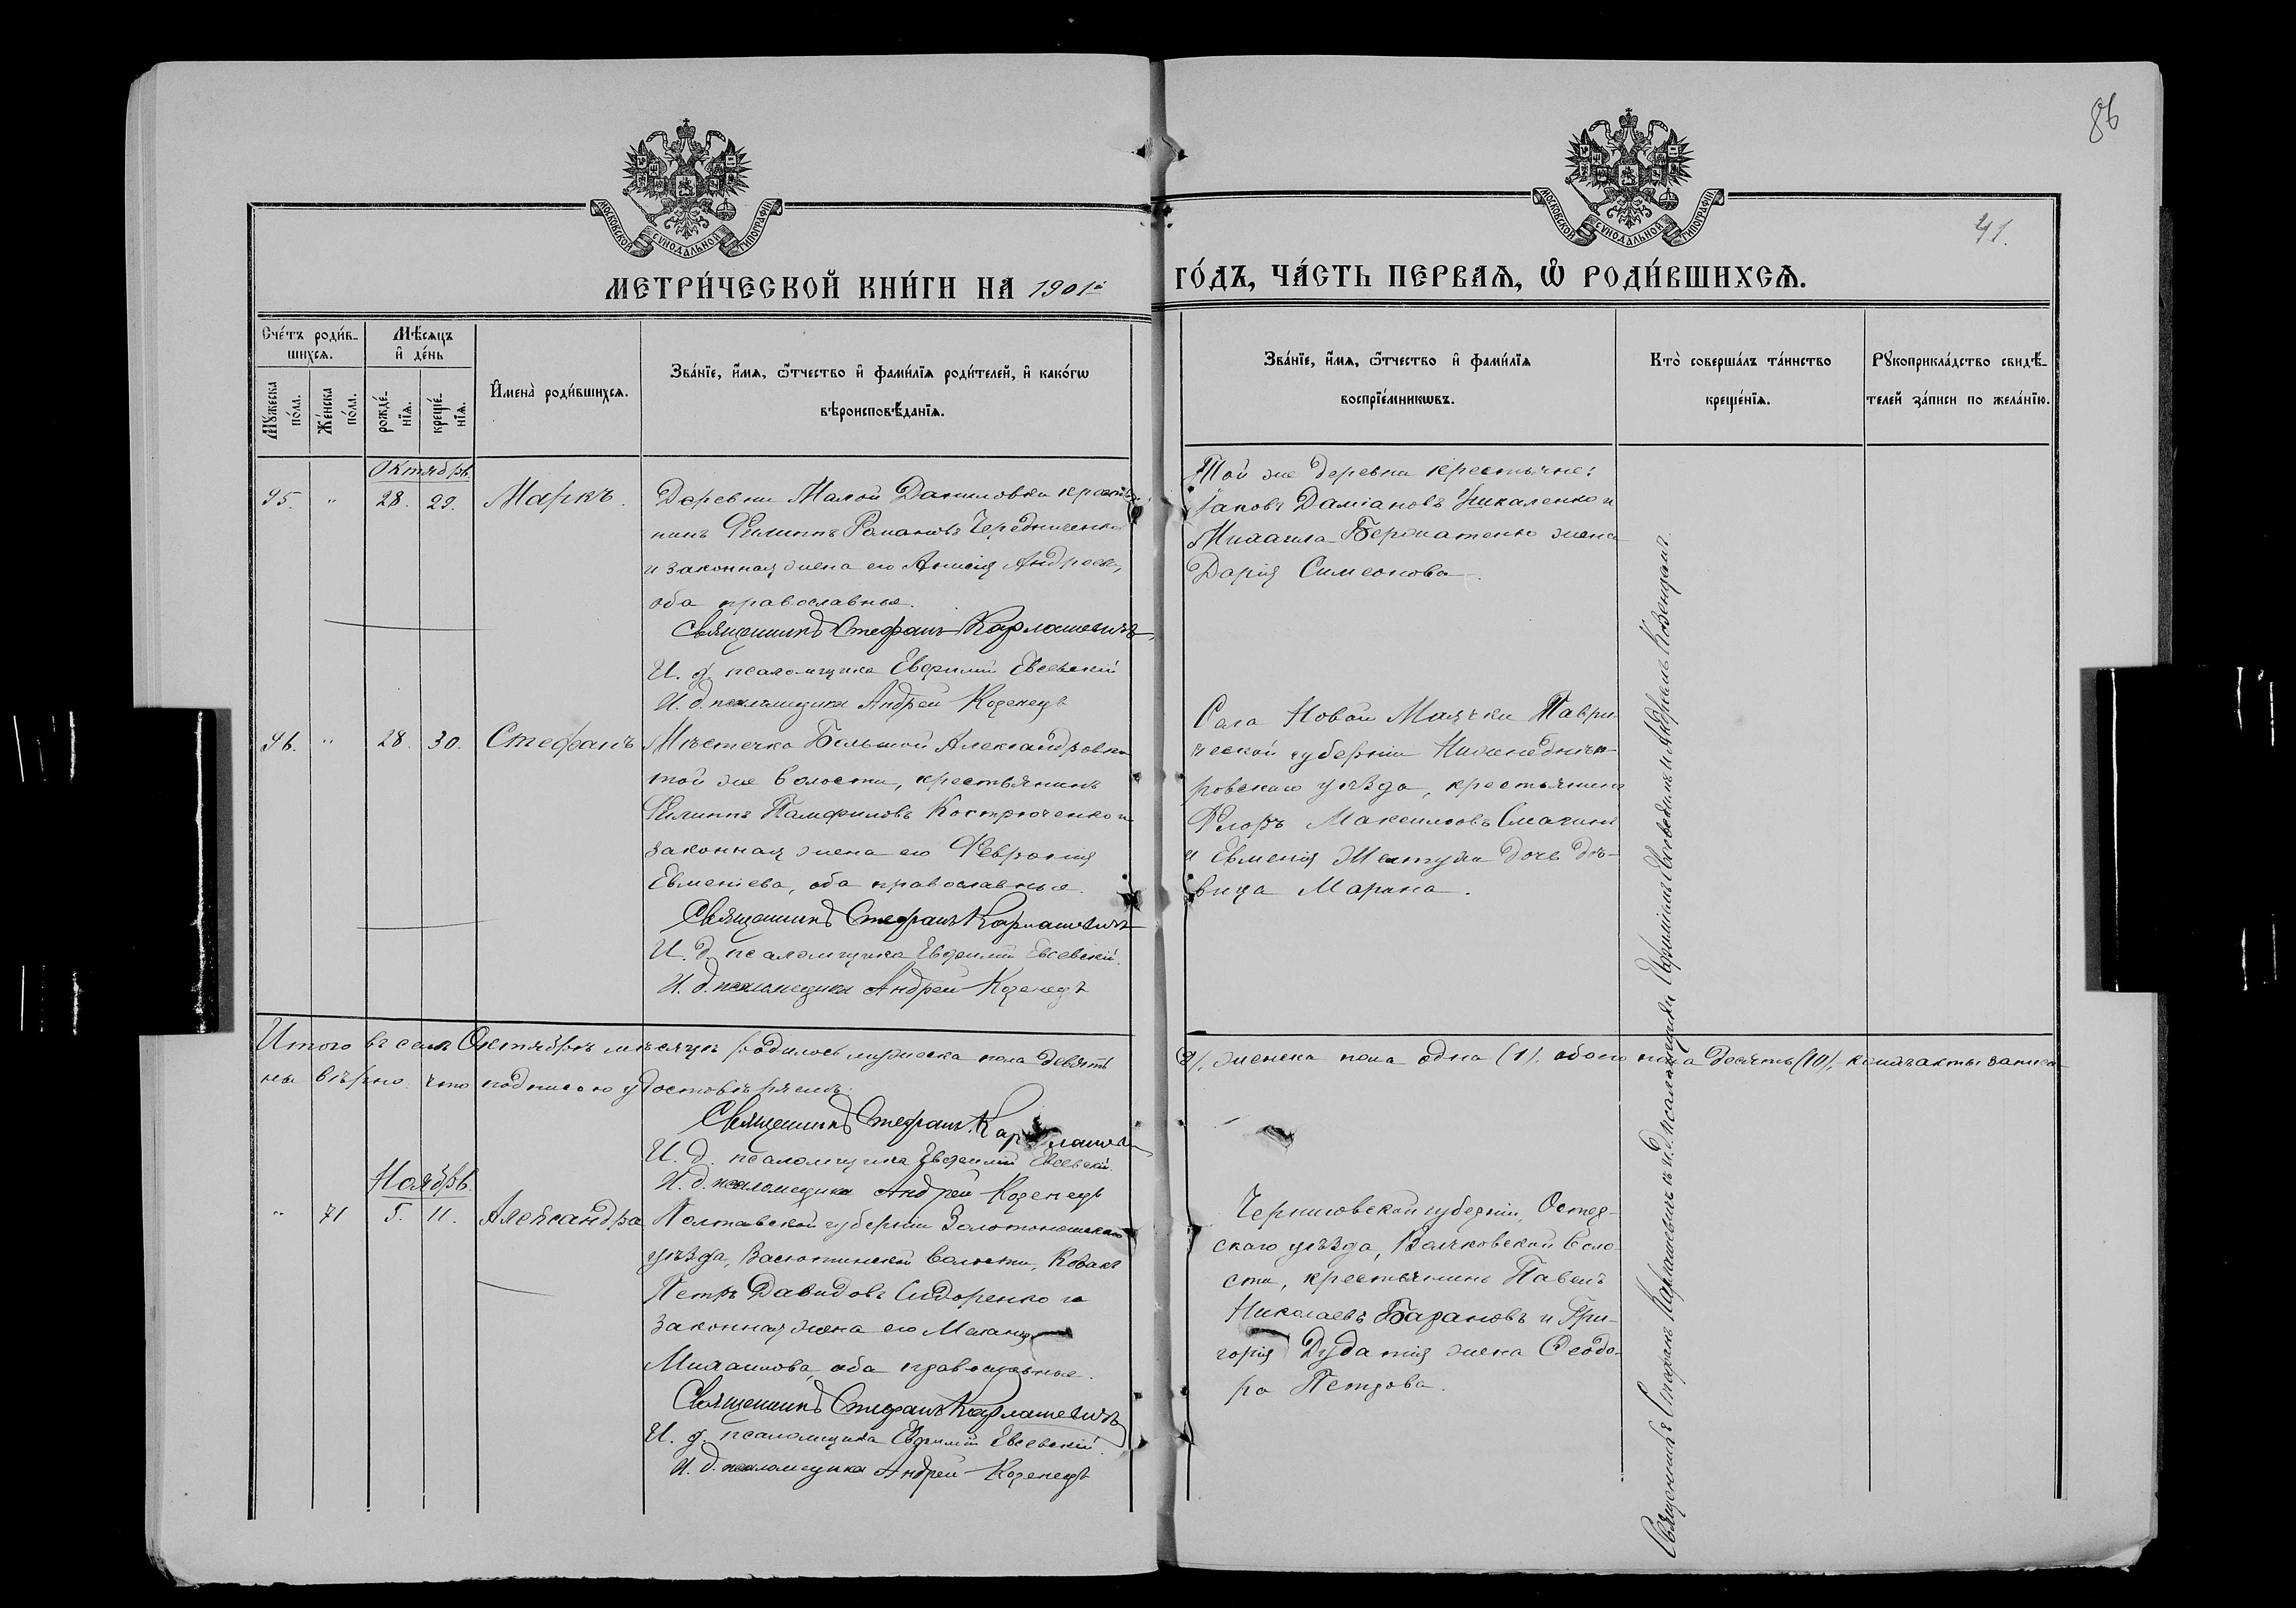 86
МОСКОВСКОЙ СѴНОДАЛЬНОЙ ТИПОГРАФІИ
МОСКОВСКОЙ СѴНОДАЛЬНОЙ ТИПОГРАФІИ
41.
МЕТРИ́ЧЕСКОЙ КНИ́ГИ НА 1901й ГО́ДЪ, ЧА́СТЬ ПЕРВАѦ, Ѽ РОДИ́ВШИХСѦ.
Сче́тъ роди́в-
шихсѧ.
Мꙋ́жеска по́ла.
Же́нска по́ла.
Мѣ́сѧцъ
и҆ де́нь
рожде́-
нїѧ.
креще́-
нїѧ.
И҆мена̀ роди́вшихсѧ.
Зва́нїе, и҆́мѧ, ѻ҆́тчество и҆ фами́лїѧ роди́телей, и҆ како́гѡ
вѣроисповѣ́данїѧ.
Зва́нїе, и҆́мѧ, ѻ҆́тчество и҆ фами́лїѧ
воспрїе́мникѡвъ.
Кто̀ соверша́лъ та́инство
креще́нїѧ.
Рꙋкоприкла́дство свидѣ́-
телей за́писи по жела́нїю.
Октябрь
95. " 28. 29. Маркъ.
Деревни Малой Даниловки крестья-
нинъ Филиппъ Романовъ Чередниченко
и законная жена его Анисія Андреева,
оба православные.
Священникъ Стефанъ Кармашевичъ
И. д. псаломщика Евфимій Евсевскій
И. д. псаломщика Андрей Козенецъ
Той же деревни крестьяне:
Іаковъ Даміановъ Чикаленко и
Михаила жена
Дарія Симеонова.
96. " 28. 30. Стефанъ
Мѣстечка Большой Александровки
той же волости, крестьянинъ
Филиппъ Памфиловъ Костюченко и
законная жена его Февронія
Евменіева, оба православные.
Священникъ Стефанъ Кармашевичъ
И. д. псаломщика Евфимій Евсевскій.
И. д. псаломщика Андрей Козенецъ
Села Новой Маячки Таври-
ческой губерніи Нижнеднѣп-
ровскаго уѣзда, крестьянинъ
Флоръ Максимовъ Смагинъ
и Евменія дочь дѣ-
вица Марина.
Итого въ семъ Октябрѣ мѣсяцѣ родилось мужеска пола девять
(9), женска пола одна (1), обоего пола десять (10), акты записа-
ны вѣрно что подписью удостовѣряемъ.
Священникъ Стефанъ Кармашевичъ
И. д. псаломщика Евфимій Евсевскій.
И. д. псаломщика Андрей Козенецъ
Ноябрь.
" 71 5. 11. Александра
Полтавской губерніи Золотоношскаго
уѣзда, Васютинской волости, козакъ
Петръ Давидовъ Сидоренко и
законная жена его Меланія
Михаилова, оба православные.
Священникъ Стефанъ Кармашевичъ
И. д. псаломщика Евфимій Евсевскій.
И. д. псаломщика Андрей Козенецъ
Черниговской губерніи, Остер-
скаго уѣзда, воло-
сти, крестьянинъ Павелъ
Николаевъ Барановъ и Гри-
горія жена Ѳеодо-
ра Петрова.
Священникъ Стефанъ Кармашевичъ и. д. псаломщика Евфимія Евсевскаго и Андрея Козенца